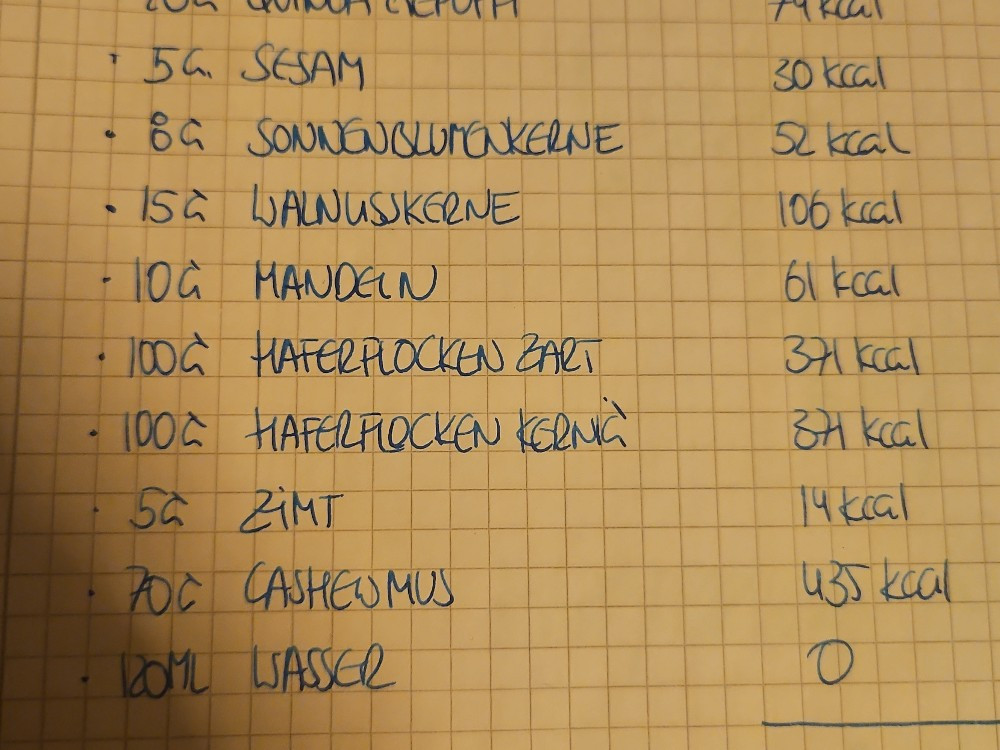 20G QUINOA GEPUFFT 74 kcal
• 5G. SESAM 30 kcal
• 8G SONNENBLUMENKERNE 52 kcal
• 15G WALNUSSKERNE 106 kcal
• 10G MANDELN 61 kcal
• 100G HAFERFLOCKEN ZART 371 kcal
• 100G HAFERFLOCKEN KERNIG 371 kcal
• 5G ZIMT 14 kcal
• 70G CASHEWMUS 435 kcal
• 120ML WASSER 0